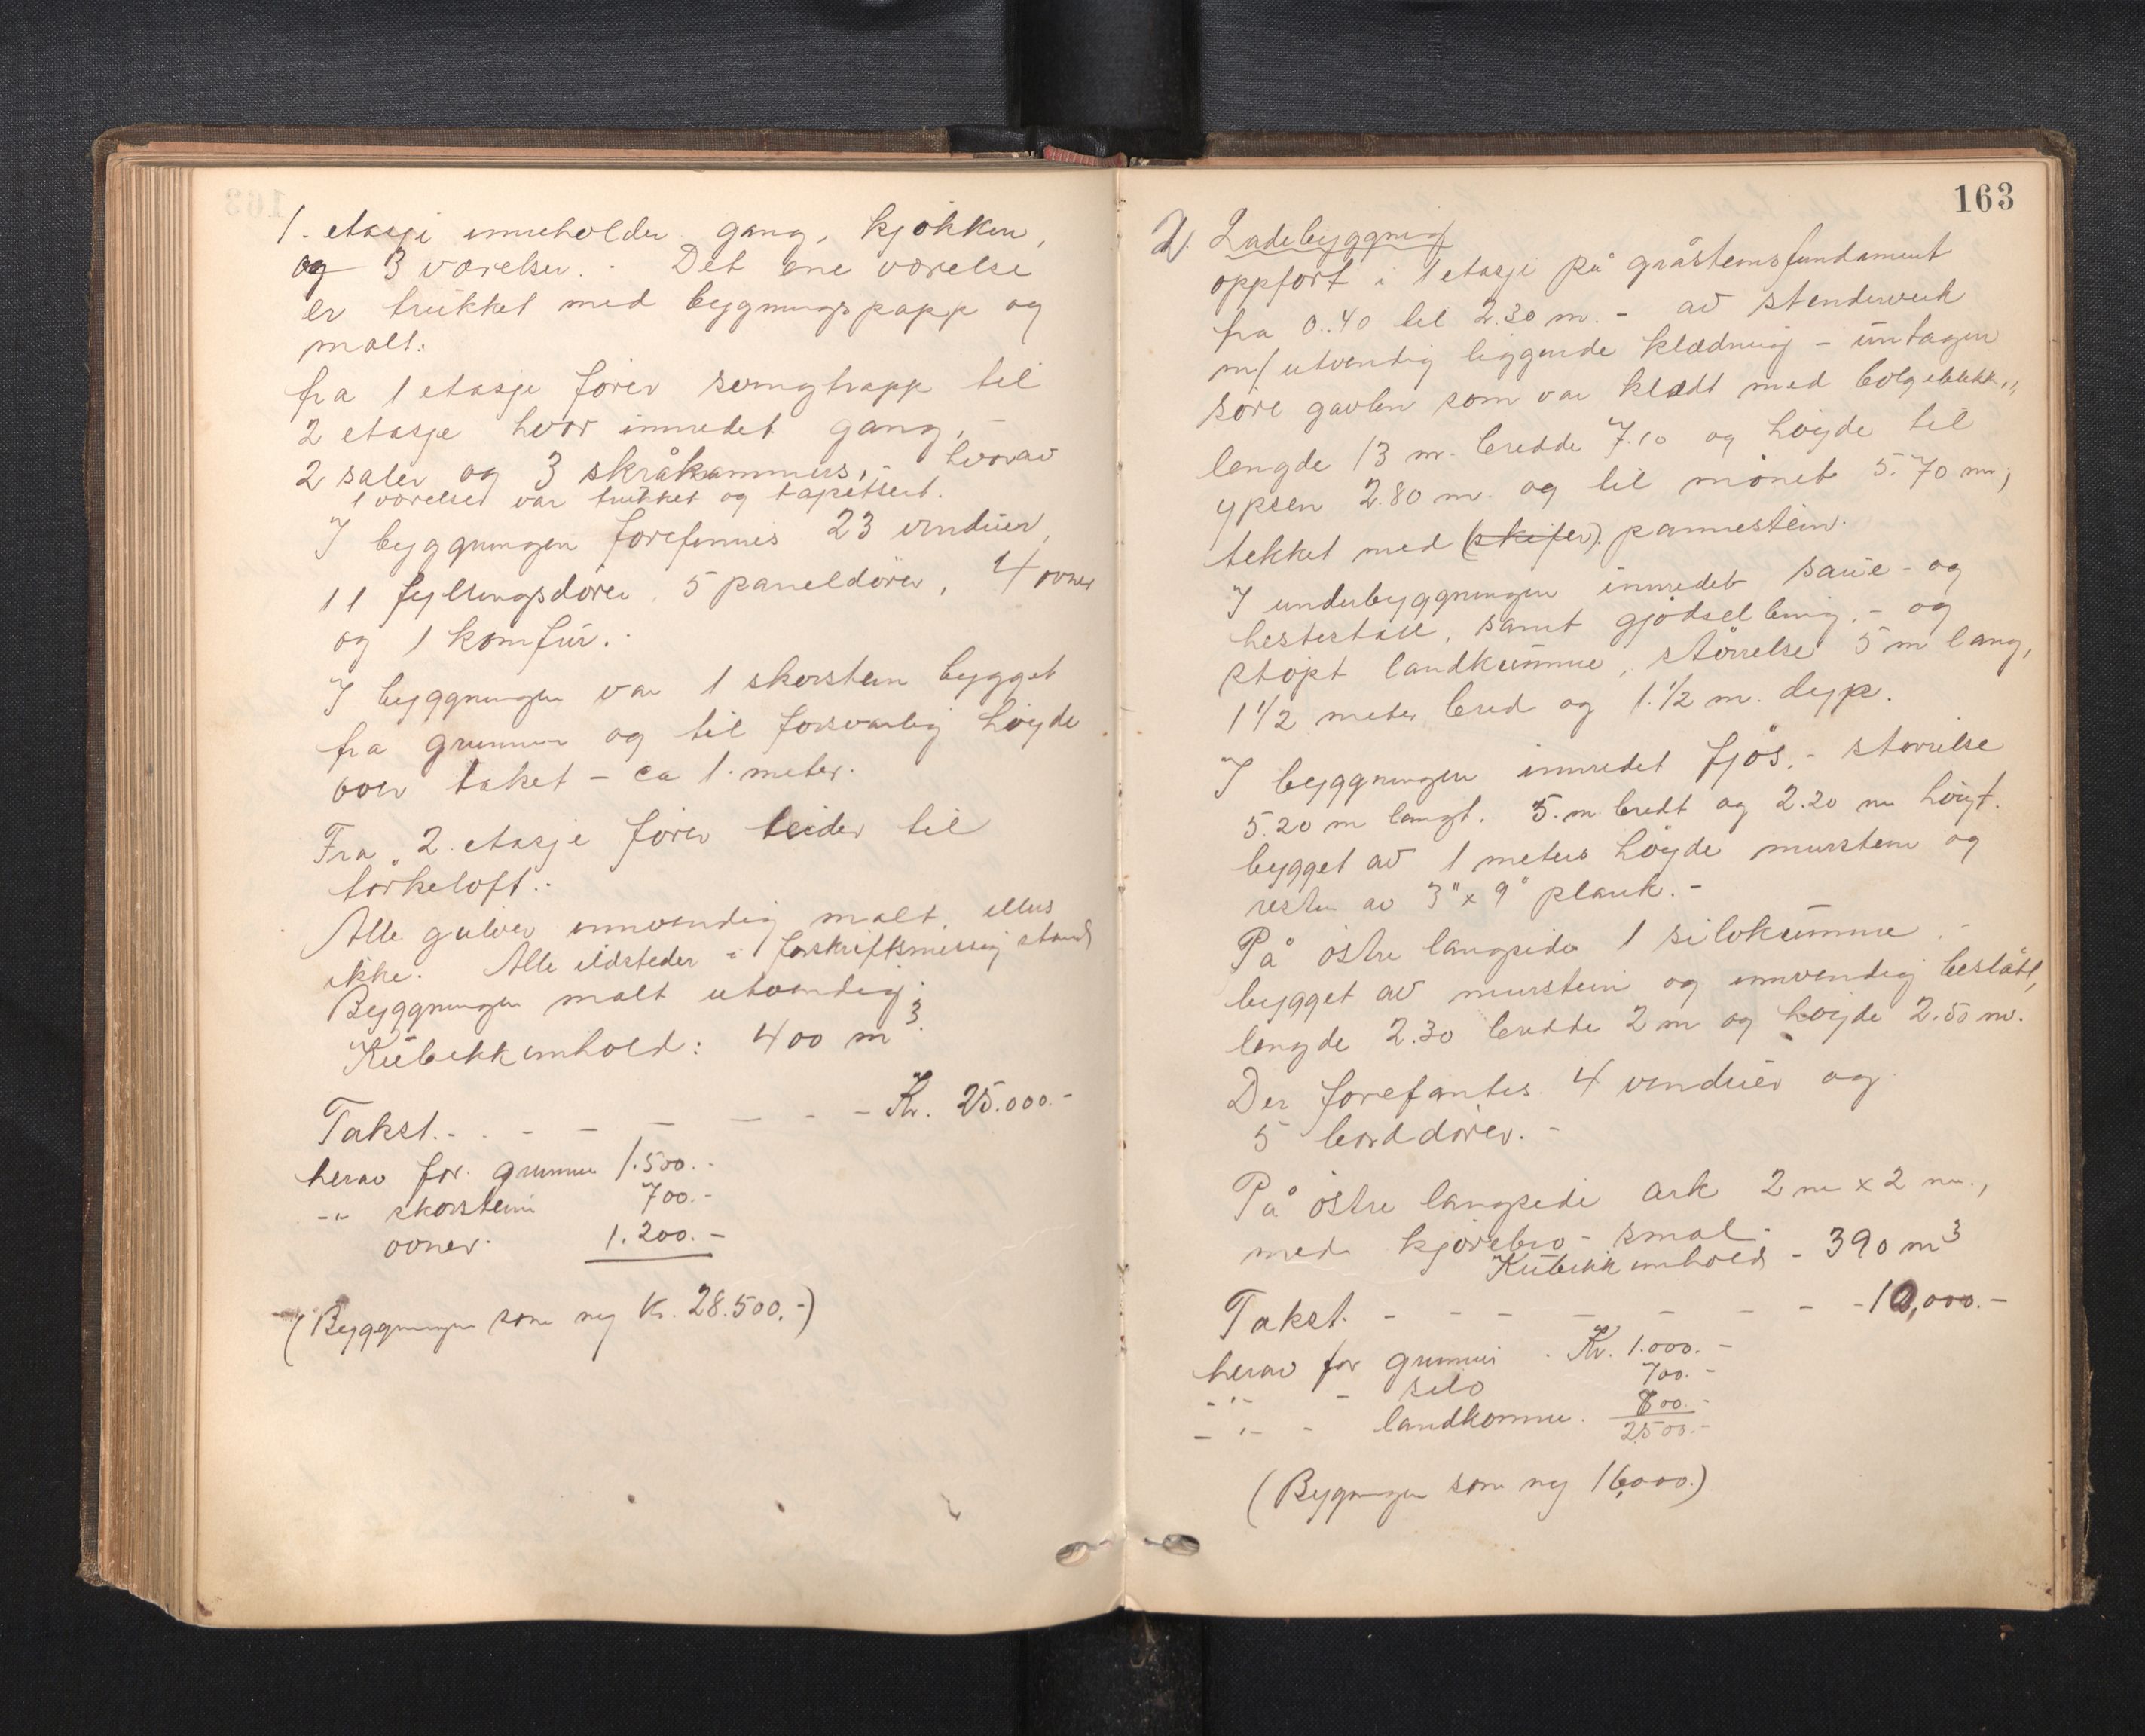 1. etasje inneholder gang, kjøkken,
og 3 værelser. - Det ene værelse
er trukket med bygningspapp og
malt.
fra 1 etasje fører svingtrapp til
2 etasje hvor innredet gang, -
2 saler og 3 skråkammers, - hvorav
1 værelset var trukket og tapetsert.
I byggningen forefinnes 23 vinduer,
11 fyllingsdører, 5 paneldører, 4 ovner
og 1 komfur.
I byggningen var 1 skorstein bygget
fra grunnen og til forsvarlig høyde
over taket - ca 1. meter.
Fra 2. etasje fører leider til
tørkeloft.
Alle gulver innvendig malt, ellers
ikke. Alle ildsteder i forskriftsmessig stand
Byggningen malt utvendig.
Kubikkinnhold: 400 m3.
Takst. - - - - - - Kr. 25.000.-
herav for grunnen 1.500.-
-"- skorstein 700.-
ovner. 1.200.-
(Byggningen som ny Kr. 28.500.-)
163
2. Ladebyggning
oppført i 1 etasje på gråsteinsfundament
fra 0.40 til 2.30 m. - av stenderverk
m/ utvendig liggende klædning - untagen
søre gavlen som var klædt med bølgeblekk,,
lengde 13 m. bredde 7.10 og høyde til
ypsen 2.80 m. og til mønet 5.70 m,
tekket med (skifer). pannestein.
I underbyggningen innredet saue- og
hestestall, samt gjødselbing, - og
støpt landkumme, størrelse 5 m lang,
1 1/2 meter bred og 1.1/2 m. dyp.
I byggningen innredet fjøs, - størrelse
5.20 m langt. 5. m bredt og 2.20 m høigt.
bygget av 1 meters høyde murstein og
resten av 3" x 9" plank. -
På østre langside 1 silokumme
bygget av murstein og innvendig beslått,
lengde 2.30 bredde 2 m og høyde 2.50 m.
Der forefantes 4 vinduer og
5 borddører. -
På østre langside ark 2 m x 2 m.,
med kjørebro - smal.
Kubikkinnhold - 390 m3
Takst. - - - - - - - 10,000.-
herav for grunnen Kr. 1.000.-
-"- - silo 700.-
-"- - landkomme. 800.-
2500.-
(Bygningen som ny 16,000.)